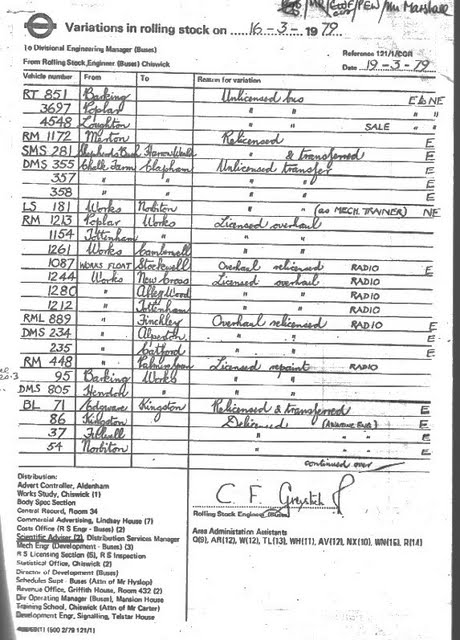 MR/ /PEW/Mr Marshall
Variations in rolling stock on 16-3-1979
To Divisional Engineering Manager (Buses)
From Rolling Stock Engineer (Buses) Chiswick
Reference 121/1/CGR
Date 19-3-79
Vehicle number From To Reason for variation
RT 851 Barking Unlicensed bus E & NE
3697 Poplar " " " "
4548 Loughton " " SALE " "
RM 1172 Merton Relicensed E
SMS 281 Shepherds Bush Harrow Weald " & transferred E
DMS 355 Chalk Farm Clapham Unlicensed transfer E
357 " " " " E
358 " " " " E
LS 181 Works Norbiton " " (as MECH. TRAINER) NE
RM 1213 Poplar Works Licensed overhaul
1154 Tottenham " " "
1261 Works Camberwell " "
1087 WORKS FLOAT Stockwell Overhaul relicensed RADIO E
1244 Works New Cross Licensed overhaul RADIO
1280 " Abbey Wood " " RADIO
1212 " Tottenham " " RADIO
RML 889 " Finchley Overhaul relicensed RADIO E
DMS 234 " Alperton " " E
235 " Catford " " E
RM 448 " Palmers Green Licensed repaint RADIO
95 Barking Works " "
DMS 805 Hendon " " "
BL 71 Edgware Kingston Relicensed & transferred E
86 Kingston Delicensed E
37 Fulwell " " " E
54 Norbiton " " " E
continued over
Distribution:
Advert Controller, Aldenham
Works Study, Chiswick (1)
Body Spec Section
Central Record, Room 34
Commercial Advertising, Lindsay House (7)
Costs Office (R S Engr - Buses) (2)
Scientific Adviser (2), Distribution Services Manager
Mech Engr (Development - Buses) (3)
R S Licensing Section (5), R S Inspection
Statistical Office, Chiswick (2)
Director of Development (Buses)
Schedules Supt - Buses (Attn of Mr Hyslop)
Revenue Office, Griffith House, Room 432 (2)
Div Operating Manager (Buses), Mansion House
Training School, Chiswick (Attn of Mr Carter)
Development Engr, Signalling, Telstar House
C. F.
Rolling Stock Engineer (Buses)
Area Administation Assistants
Q(9), AR(12), W(12), TL(13), WH(11), AV(12), NX(10), WN(16), R(14)
(500 2/79 121/1)